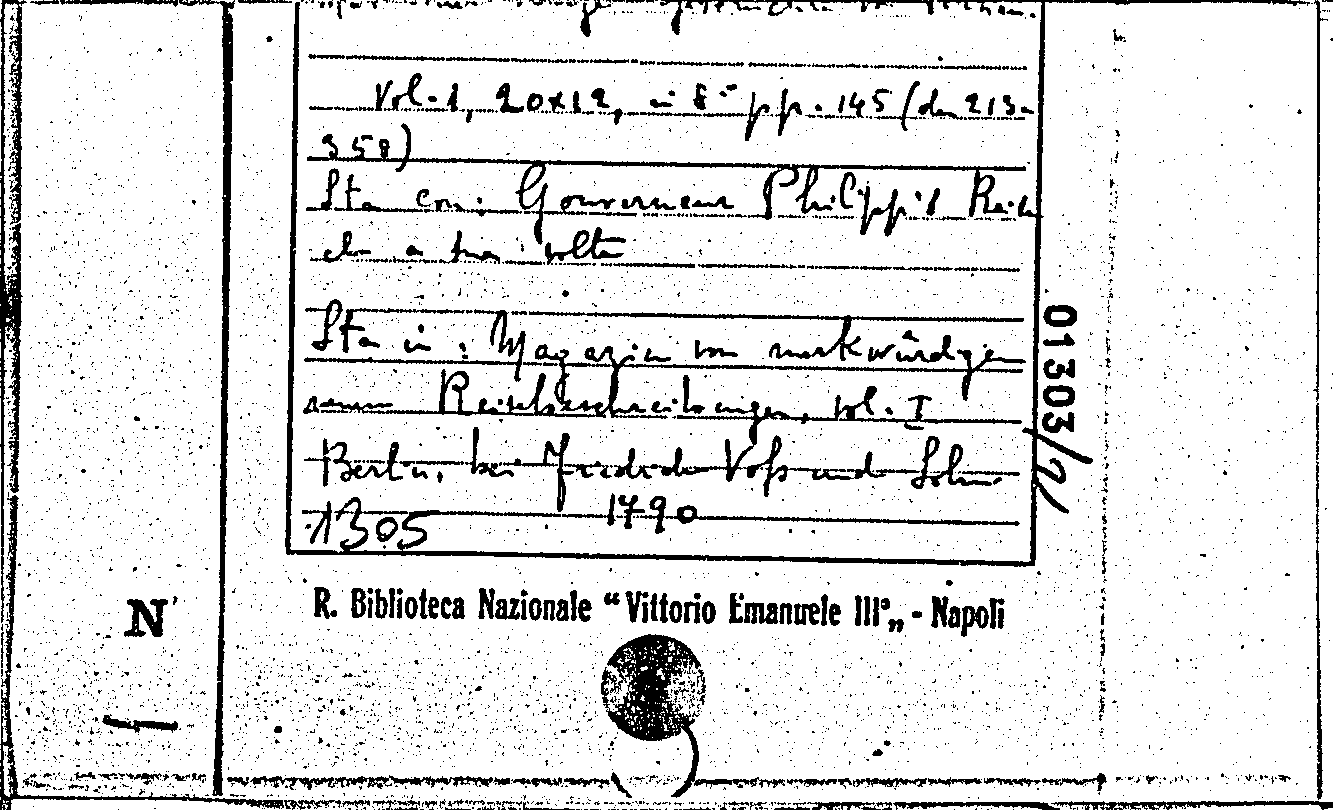 Vol. 1, 20x12, in 8° pp. 145 (da 213-
358)
Sta con: Gouverneur Philipp's Reis
e a sua volta
Sta in: Magazin von merkwürdigen
neuen Reisebeschreibungen, vol. I
Berlin, bei Friedrich Voß und Sohn
1790
1305
01303/21
N
R. Biblioteca Nazionale “Vittorio Emanuele III°„ - Napoli